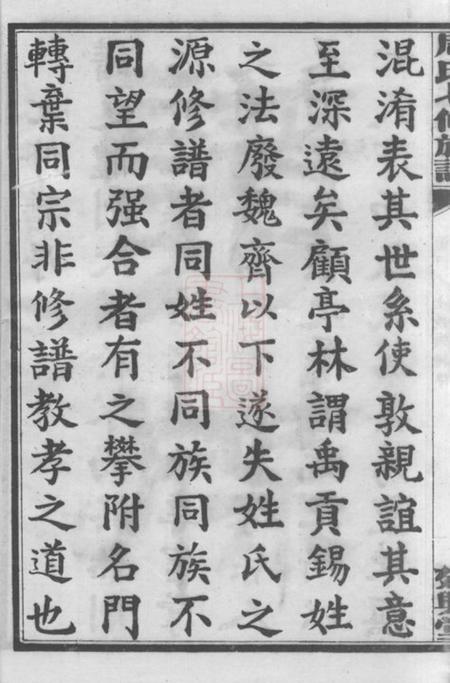 混淆表其世系使敦親誼其意
至深遠矣顧亭林謂禹貢錫姓
之法廢魏齊以下遂失姓氏之
源修譜者同姓不同族同族不
同望而强合者有之攀附名門
轉棄同宗非修譜教孝之道也